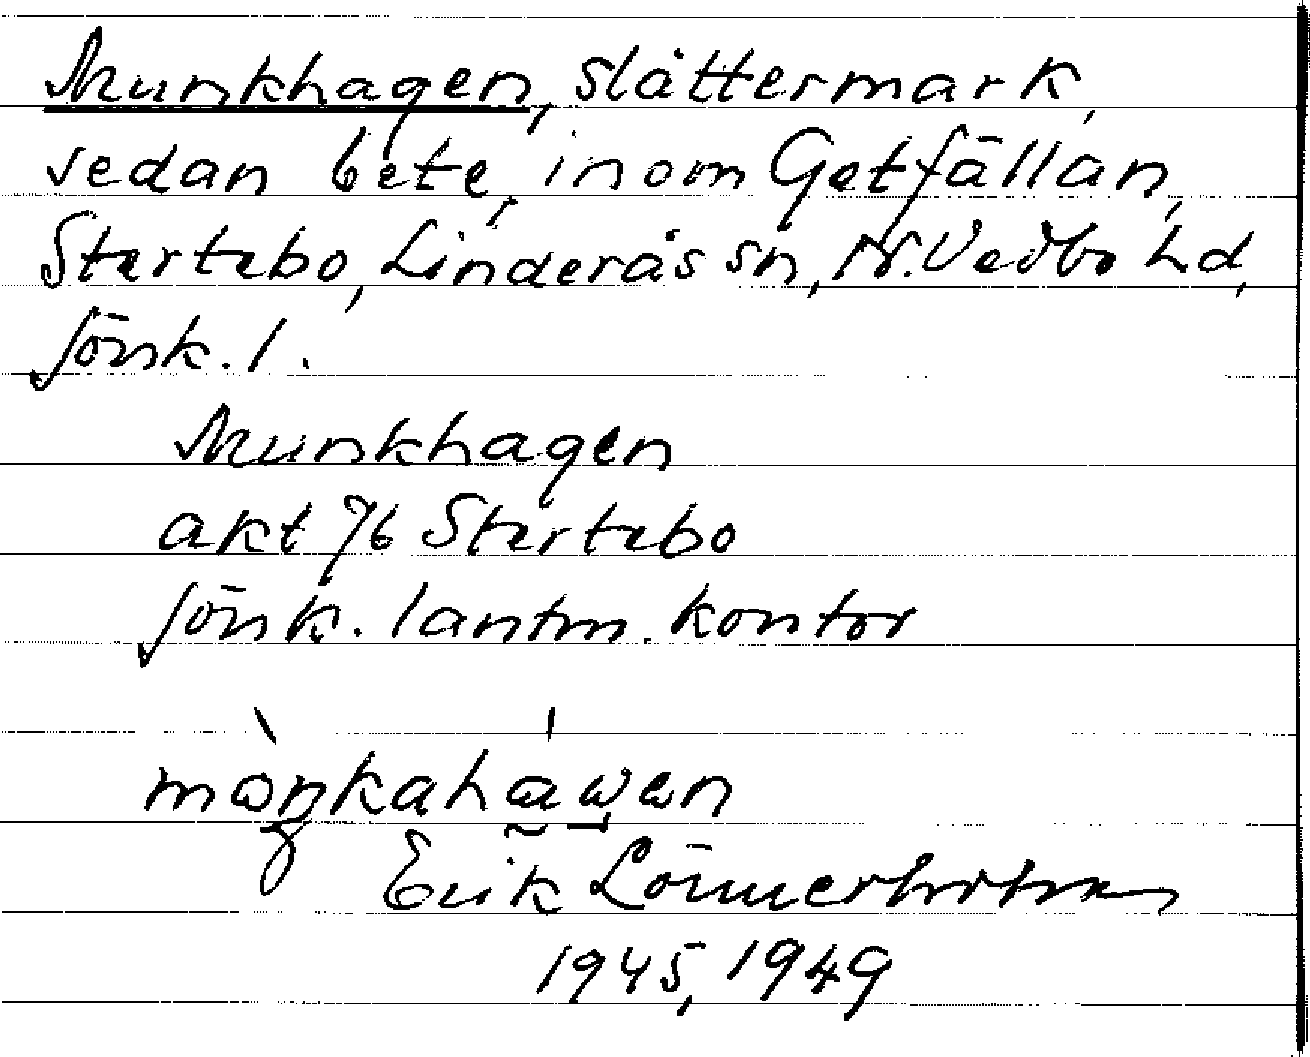 Munkhagen, slåttermark,
sedan bete, inom Getfällan,
Startebo, Linderås sn, N. Vedbo hd,
Jönk. l.
Munkhagen
akt 76 Startebo
Jönk. lantm. kontor
Erik
1945, 1949